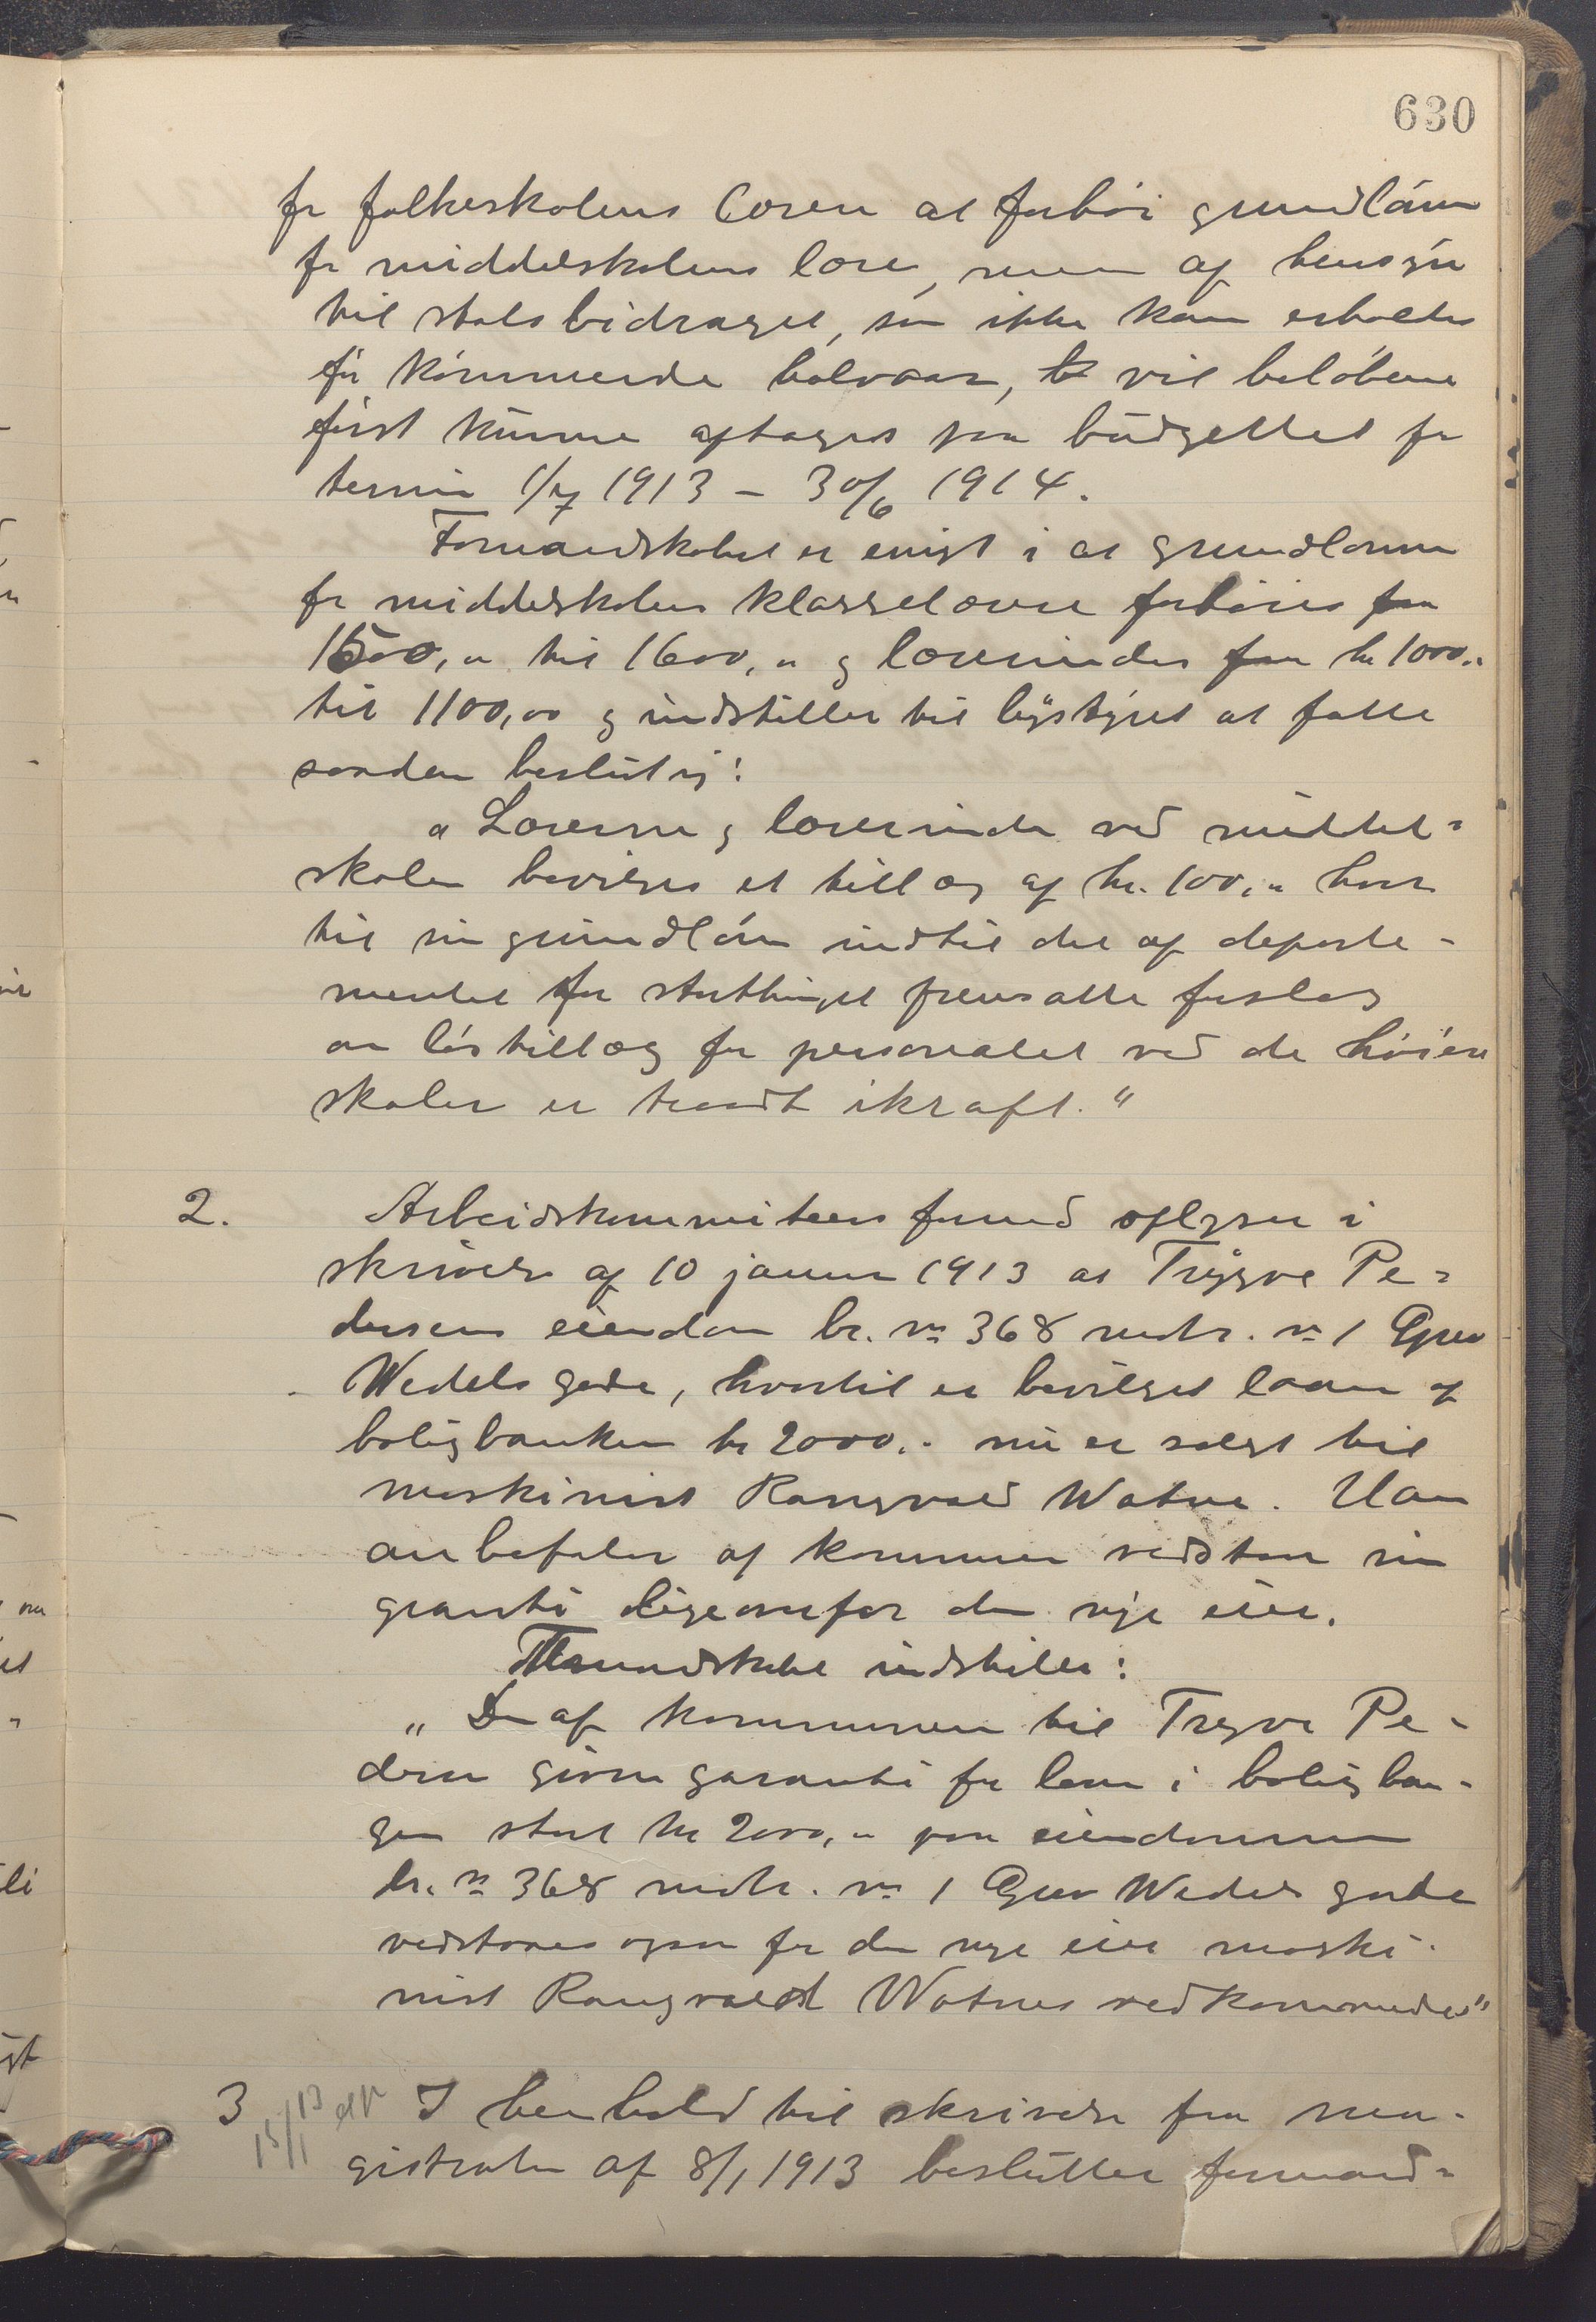 630
for folkeskolens lærere at forhøi grundlønn
for middelskolens lære, men af hensyn
til statsbidraget, som ikke kan erholdes
før kommende halvaar, vil beløbene
først kunne optages paa budgettet for
termin 1/7 1913 – 30/6 1914.
Formandskabet er enigt i at grundlønnen
for middelskolens klasselærere forhøies fra
1500,- til 1600,- og lærerinder fra kr 1000,-
til 1100,00 og indstiller til bystyret at fatte
saadan beslutning:
"Lærerne og lærerinder ved middel-
skolen bevilges et tillæg af kr. 100,- hver
til sin grundløn indtil det af departe-
mentet for storthinget fremsatte forslag
om løstillæg for personalet ved de høiere
skoler er traadt ikraft."
2. Arbeidskommiteens formand oplyser i
skrivelse af 10 januar 1913 at Trygve Pe-
dersens eiendom br. nr 368 matr. nr 1 Grev
Wedels gade, hvortil er bevilget laan af
boligbanken kr 2000,- nu er solgt til
maskinist Rangvald Watne. Man
anbefaler at kommunen vedstaar sin
granti ligeoverfor den nye eier.
Formandskabet indstiller:
"Den af kommunen til Trygve Pe-
dersen givne garanti for laan i boligban-
gen stort kr 2000,- paa eiendommen
br. nr 368 matr. nr 1 Grev Wedels gade
vedstaaes ogsaa for den nye eier maski-
nist Rangvald Watnes vedkommende"
3 15/1 13 I henhold til skrivelse fra ma-
gistraten af 8/1 1913 beslutter formand-